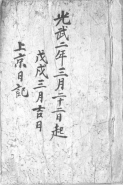 光武二年三月二十二日起
戊戌三月吉日
上京日記